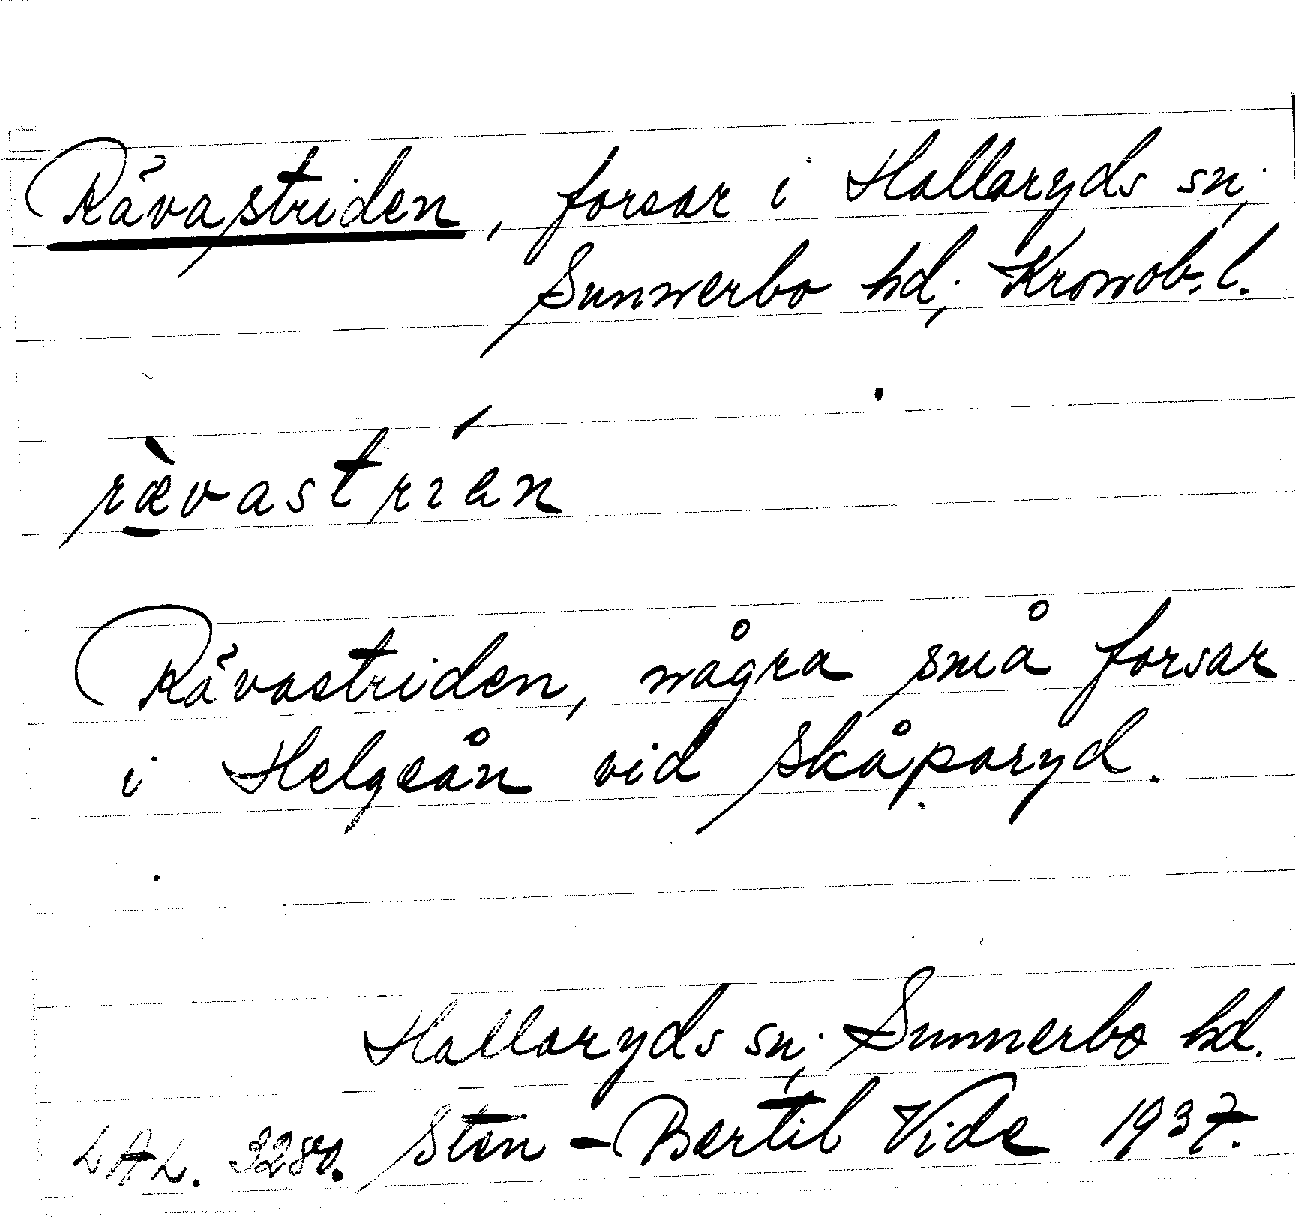 Rävastriden, forsar i Hallaryds sn;
Sunnerbo hd; Kronob. l.
rævastrían
Rävastriden, några små forsar
i Helgeån vid Skåparyd.
Hallaryds sn; Sunnerbo hd.
LAL. 3280. Sten-Bertil Vide 1937.